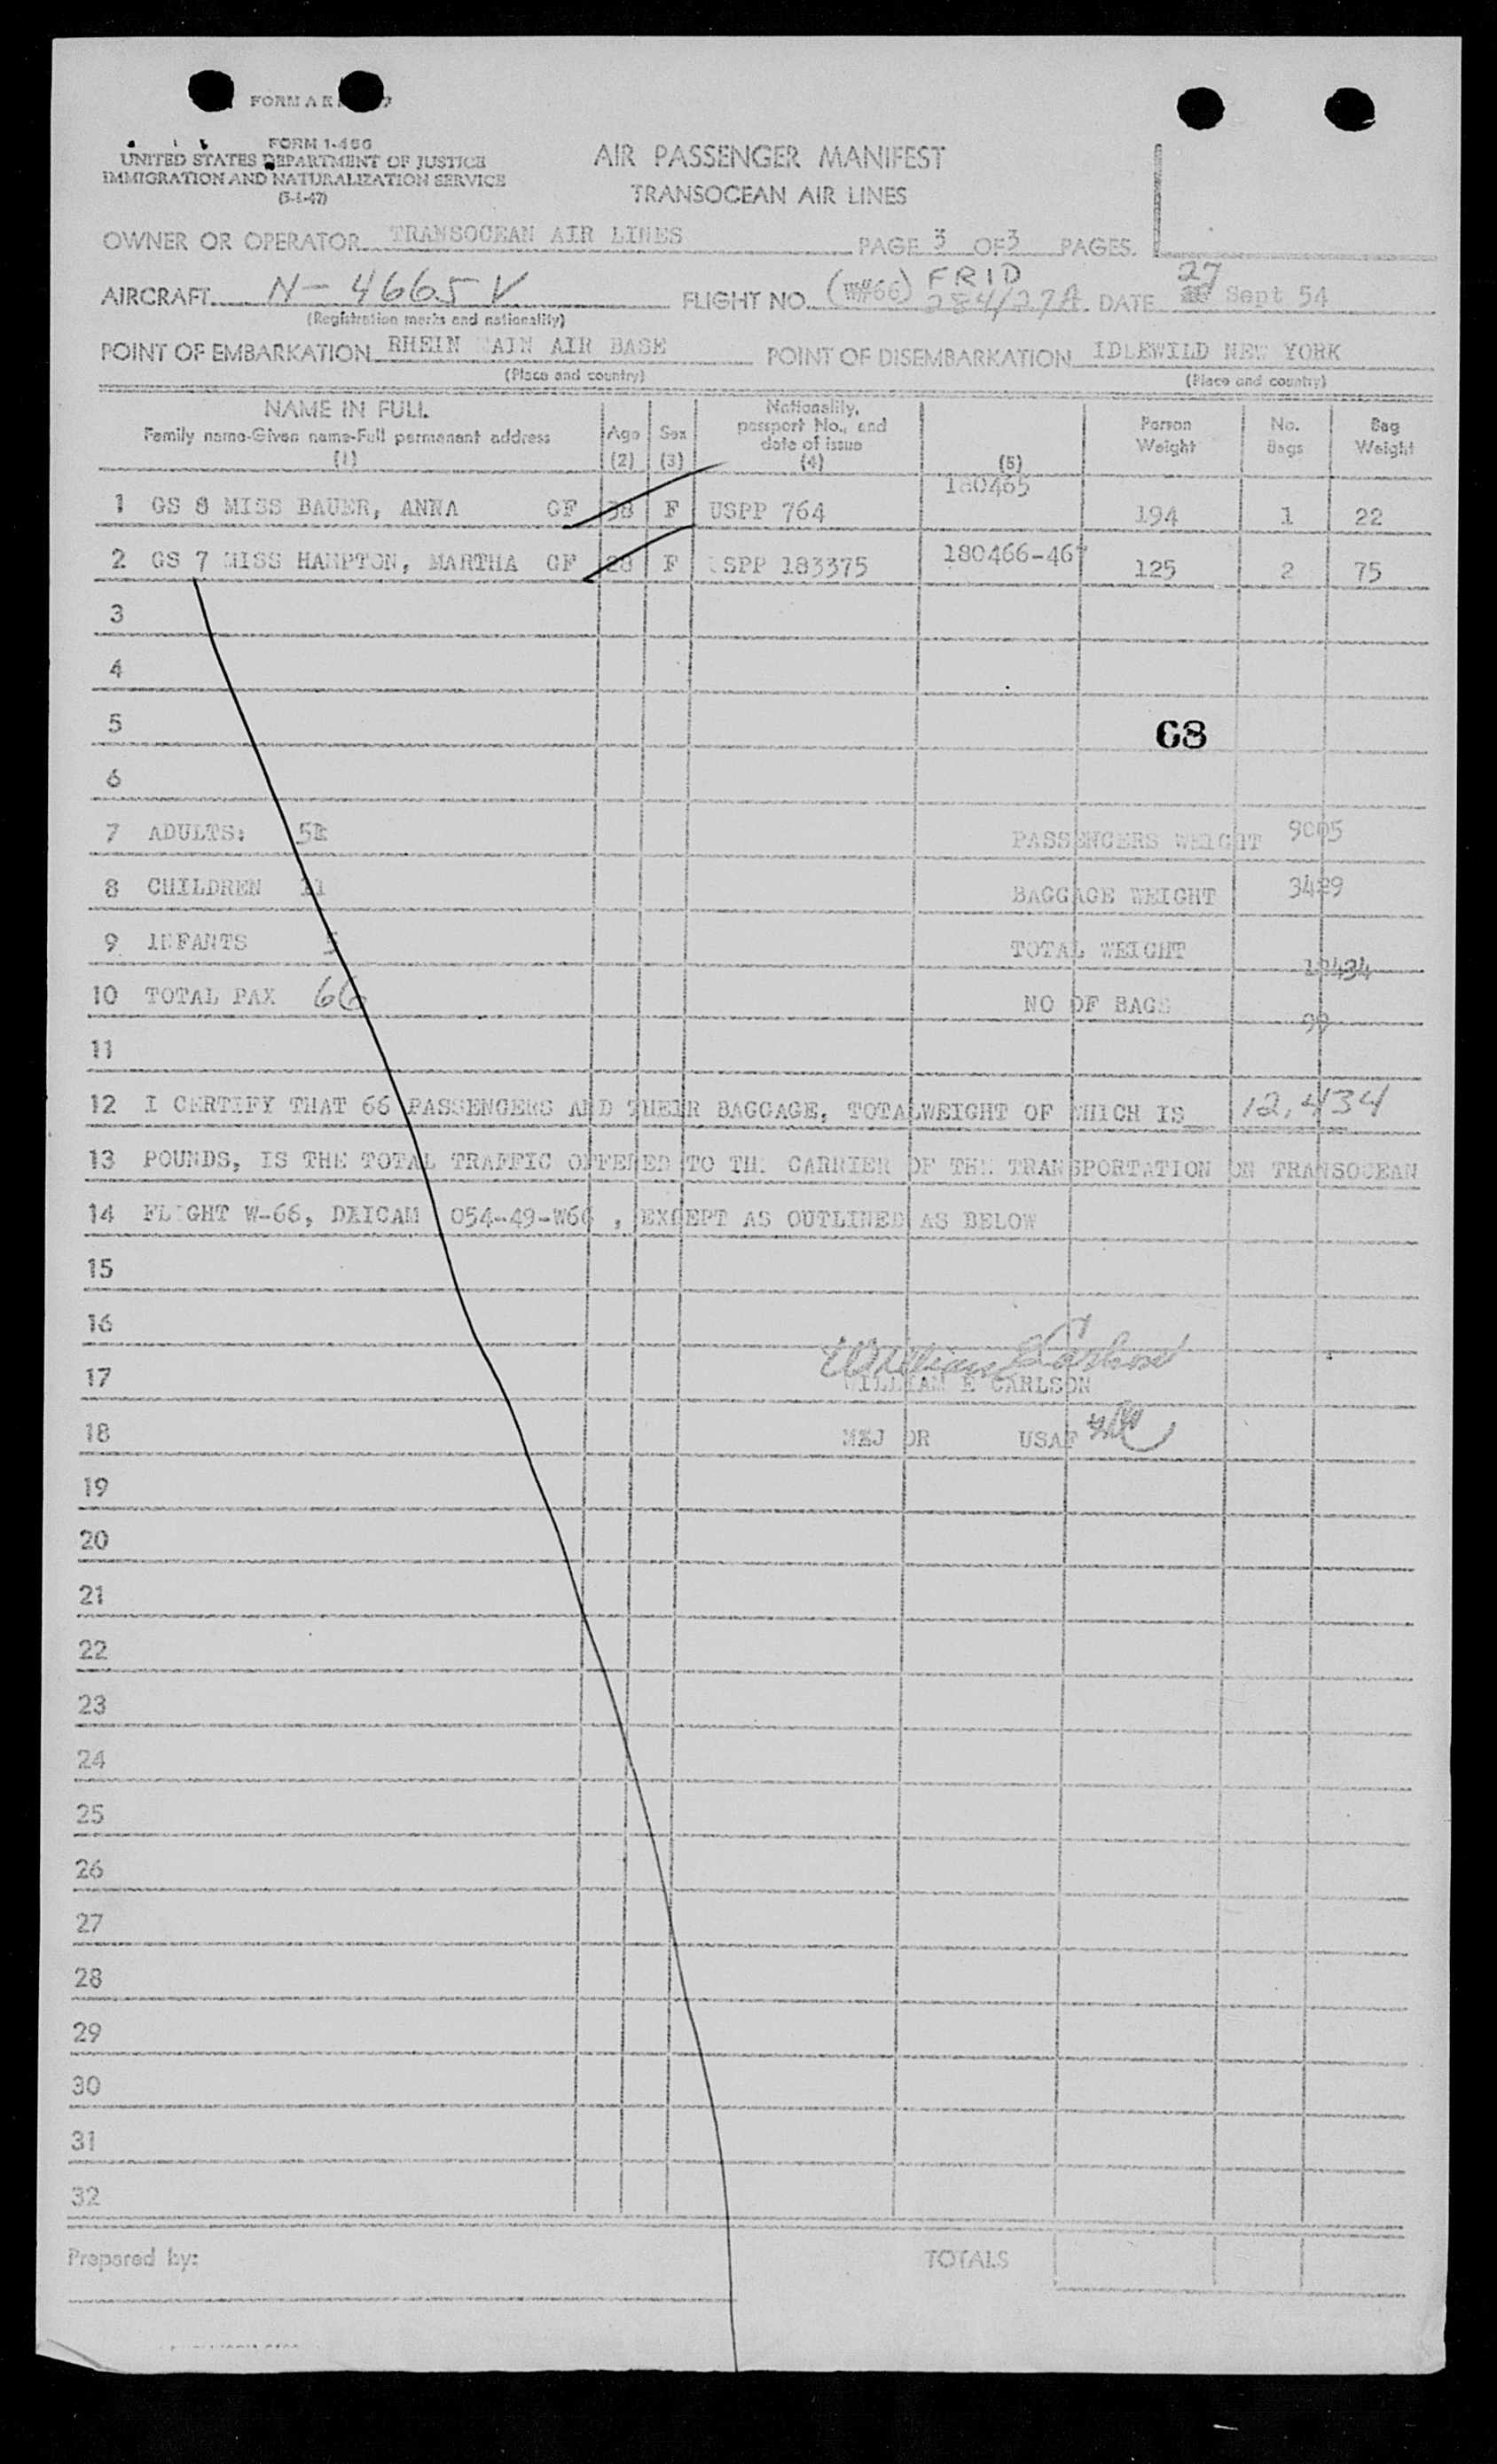 FORM A R
FORM 1-466
UNITED STATES DEPARTMENT OF JUSTICE
IMMIGRATION AND NATURALIZATION SERVICE
(5-1-47)
AIR PASSENGER MANIFEST
TRANSOCEAN AIR LINES
OWNER OR OPERATOR TRANSOCEAN AIR LINES PAGE 3 OF 3 PAGES.
AIRCRAFT N-4665V FLIGHT NO. (W#66) FRID 284/27A DATE 27 Sept 54
(Registration marks and nationality)
POINT OF EMBARKATION RHEIN MAIN AIR BASE POINT OF DISEMBARKATION IDLEWILD NEW YORK
(Place and country) (Place and country)
NAME IN FULL
Family name-Given name-Full permanent address
(1)
Age
(2)
Sex
(3)
Nationality, passport No., and date of issue
(4)
(5)
Person Weight
No. Bags
Bag Weight
1 GS 8 MISS BAUER, ANNA GF 38 F USPP 764 180465 194 1 22
2 GS 7 MISS HAMPTON, MARTHA GF 28 F USPP 183375 180466-467 125 2 75
3
4
5 68
6
7 ADULTS: PASSENGERS WEIGHT 9005
8 CHILDREN 11 BAGGAGE WEIGHT 3429
9 INFANTS 5 TOTAL WEIGHT 12434
10 TOTAL PAX 66 NO OF BAGS 99
11
12 I CERTIFY THAT 66 PASSENGERS AND THEIR BAGGAGE, TOTALWEIGHT OF WHICH IS 12,434
13 POUNDS, IS THE TOTAL TRAFFIC OFFERED TO THE CARRIER OF THE TRANSPORTATION ON TRANSOCEAN
14 FLIGHT W-66, DKICAM 054-49-W66 , EXCEPT AS OUTLINED AS BELOW
15
16
William E Carlson
17 WILLIAM E CARLSON
18 MEJ OR USAF
19
20
21
22
23
24
25
26
27
28
29
30
31
32
Prepared by: TOTALS